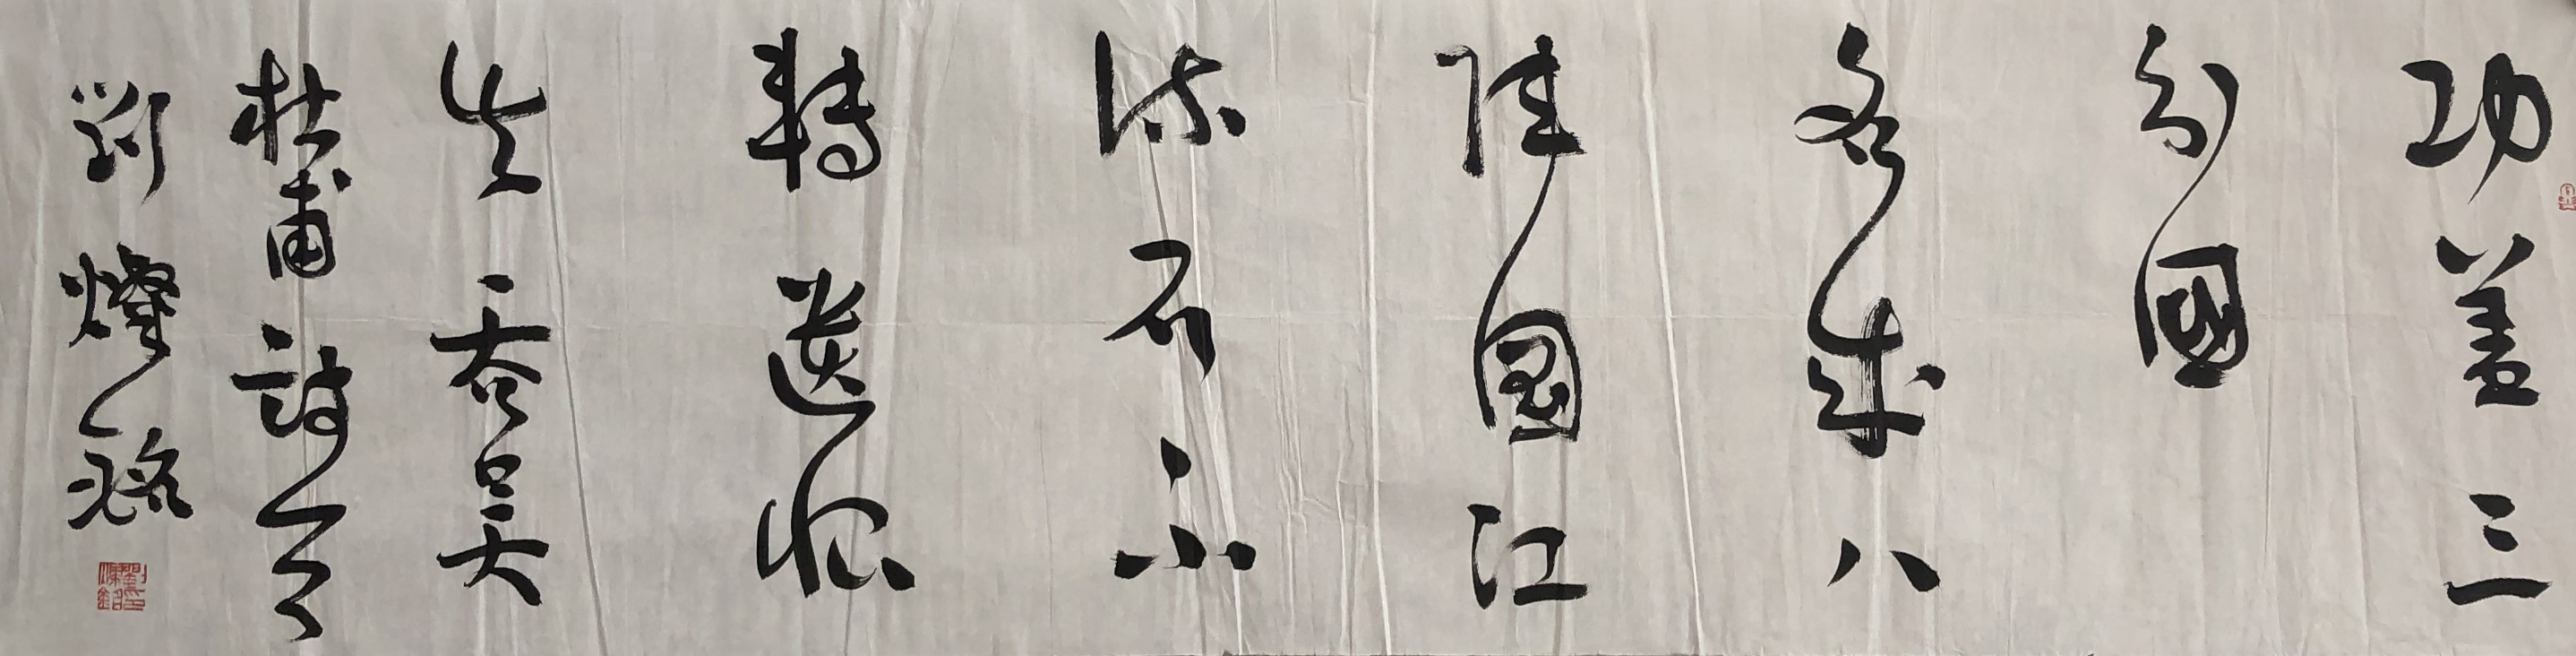 功盖三
分國
名成八
陣圖江
流石不
轉遺恨
失吞吴
杜甫詩
劉燦銘